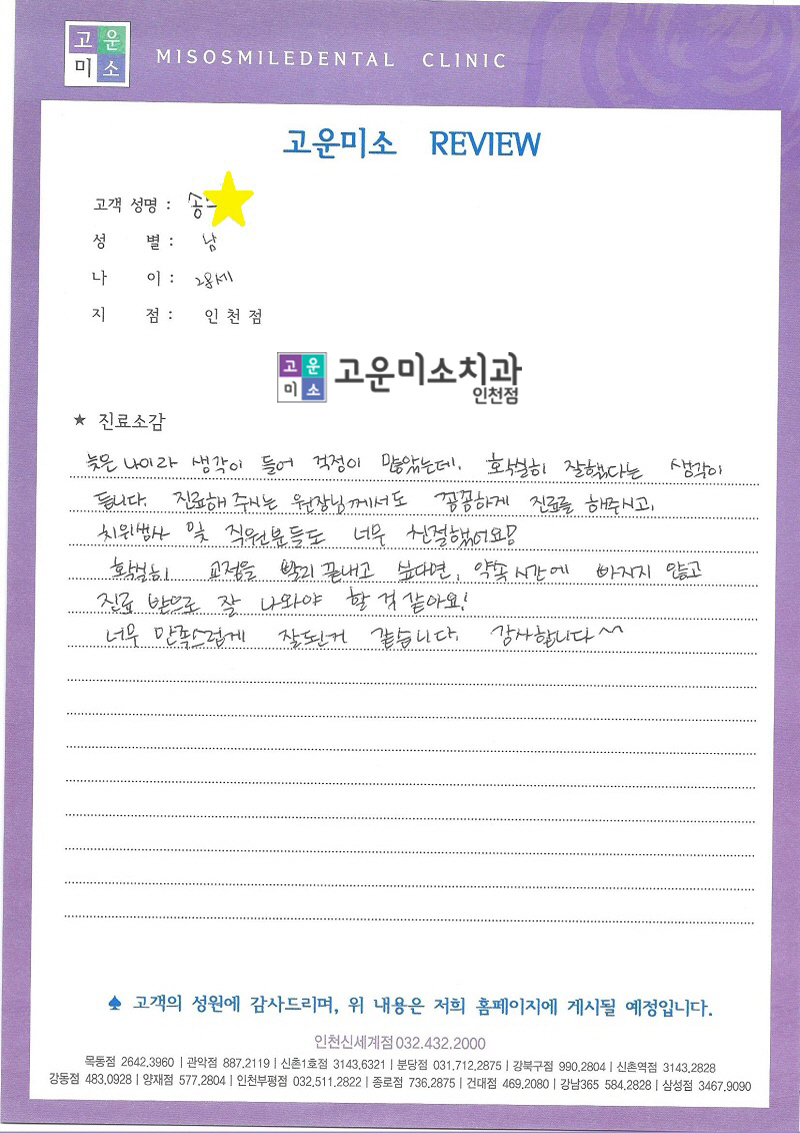 고운
미소
MISOSMILEDENTAL CLINIC
고운미소 REVIEW
고객 성명 : 송
성 별 : 남
나 이 : 28세
지 점 : 인천점
고운
미소
고운미소치과
인천점
★ 진료소감
늦은 나이라 생각이 들어 걱정이 많았는데, 확실히 잘했다는 생각이
듭니다. 진료해 주시는 원장님께서도 꼼꼼하게 진료를 해주시고,
치위생사 및 직원분들도 너무 친절했어요!
확실히 교정을 빨리 끝내고 싶다면, 약속 시간에 빠지지 않고
진료 받으로 잘 나와야 할 것 같아요!
너무 만족스럽게 잘된거 같습니다. 감사합니다~
♠ 고객의 성원에 감사드리며, 위 내용은 저희 홈페이지에 게시될 예정입니다.
인천신세계점 032.432.2000
목동점 2642.3960 | 관악점 887.2119 | 신촌1호점 3143.6321 | 분당점 031.712.2875 | 강북구점 990.2804 | 신촌역점 3143.2828
강동점 483.0928 | 양재점 577.2804 | 인천부평점 032.511.2822 | 종로점 736.2875 | 건대점 469.2080 | 강남365 584.2828 | 삼성점 3467.9090